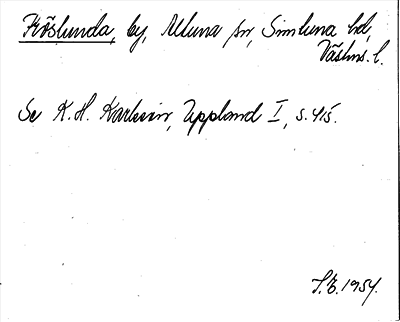 Fröslunda, by, Altuna sn, Simtuna hd,
Västm. l.
Se K. H. Karlsson, Uppland I, s. 415.
S.E. 1954.